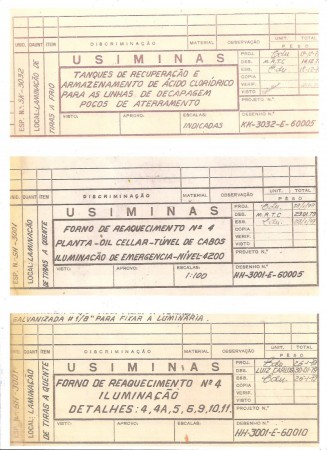 UNID. QUANT ITEM DISCRIMINAÇÃO MATERIAL OBSERVAÇÃO UNIT. TOTAL
PÊSO
ESP. N.º: SK-3032
LOCAL: LAMINAÇÃO DE
TIRAS A FRIO
USIMINAS
TANQUES DE RECUPERAÇÃO E
ARMAZENAMENTO DE ÁCIDO CLORÍDRICO
PARA AS LINHAS DE DECAPAGEM
POÇOS DE ATERRAMENTO
PROJ. Edu
DES. M.R.T.C
ESP. Edu
COPIA
VERIF.
CONT.
PROJETO N.º
VISTO: APROVO: ESCALAS: DESENHO N.º
INDICADAS KK-3032-E-60005
UNID. QUANT ITEM DISCRIMINAÇÃO MATERIAL OBSERVAÇÃO UNIT. TOTAL
PÊSO
LOCAL: LAMINAÇÃO
DE TIRAS A QUENTE
USIMINAS
FORNO DE REAQUECIMENTO Nº 4
PLANTA-OIL CELLAR-TÚNEL DE CABOS
ILUMINAÇÃO DE EMERGENCIA-NÍVEL-4200
PROJ. Edu
DES. M.R.T.C 29.01.79
ESP. Edu
COPIA
VERIF.
CONT.
PROJETO N.º
VISTO: APROVO: ESCALAS: DESENHO N.º
1:100 HH-3001-E-60005
GALVANIZADA #1/8" PARA FIXAR A LUMINÁRIA.
UNID. QUANT ITEM DISCRIMINAÇÃO MATERIAL OBSERVAÇÃO UNIT. TOTAL
PÊSO
LOCAL: LAMINAÇÃO
DE TIRAS A QUENTE
USIMINAS
FORNO DE REAQUECIMENTO Nº 4
ILUMINAÇÃO
DETALHES: 4, 4A, 5, 6, 9, 10, 11.
PROJ. Edu
DES. LUIZ CARLOS
ESP. Edu
COPIA
VERIF.
CONT.
PROJETO N.º
VISTO: APROVO: ESCALAS: DESENHO N.º
HH-3001-E-60010